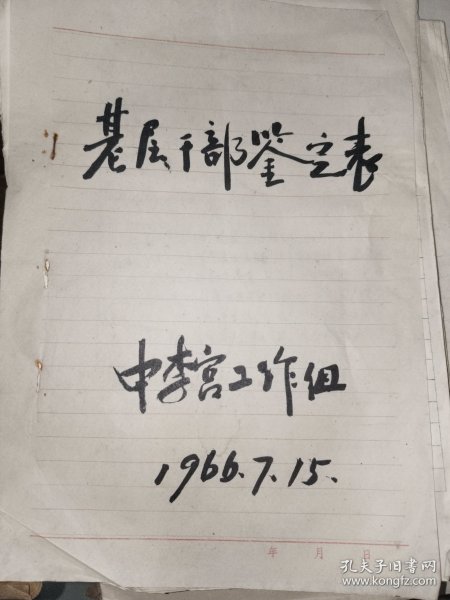 基层干部鉴定表
中李宫工作组
1966.7.15.
年 月 日
孔夫子旧书网
www.kongfz.com